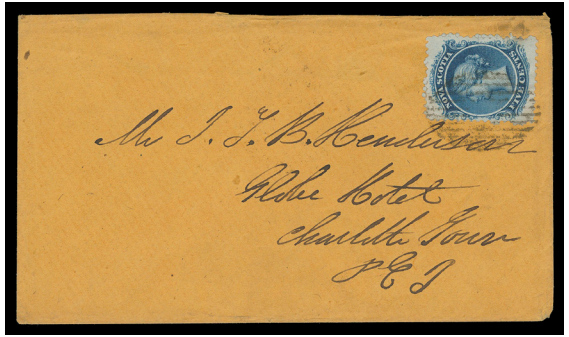 NOVA SCOTIA
FIVE CENTS
Mr J. T. B. Henderson
Globe Hotel
Charlotte Town
P E I